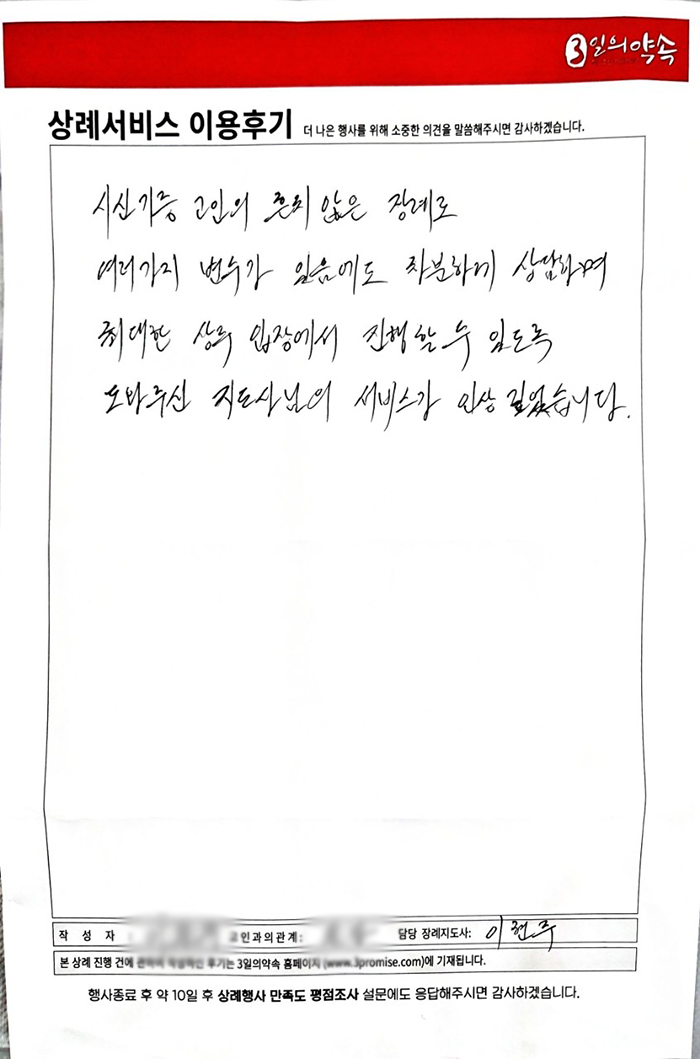 3일의약속
상례서비스 이용후기 더 나은 행사를 위해 소중한 의견을 말씀해주시면 감사하겠습니다.
시신기증 고인의 흔치 않은 장례로
여러가지 변수가 있음에도 차분하게 상담하며
최대한 상주 입장에서 진행할 수 있도록
도와주신 지도사님의 서비스가 인상 깊었습니다.
작 성 자 : 고인과의관계: 담당 장례지도사: 이현주
본 상례 진행 건에 후기는 3일의약속 홈페이지 (www.3promise.com)에 기재됩니다.
행사종료 후 약 10일 후 상례행사 만족도 평점조사 설문에도 응답해주시면 감사하겠습니다.